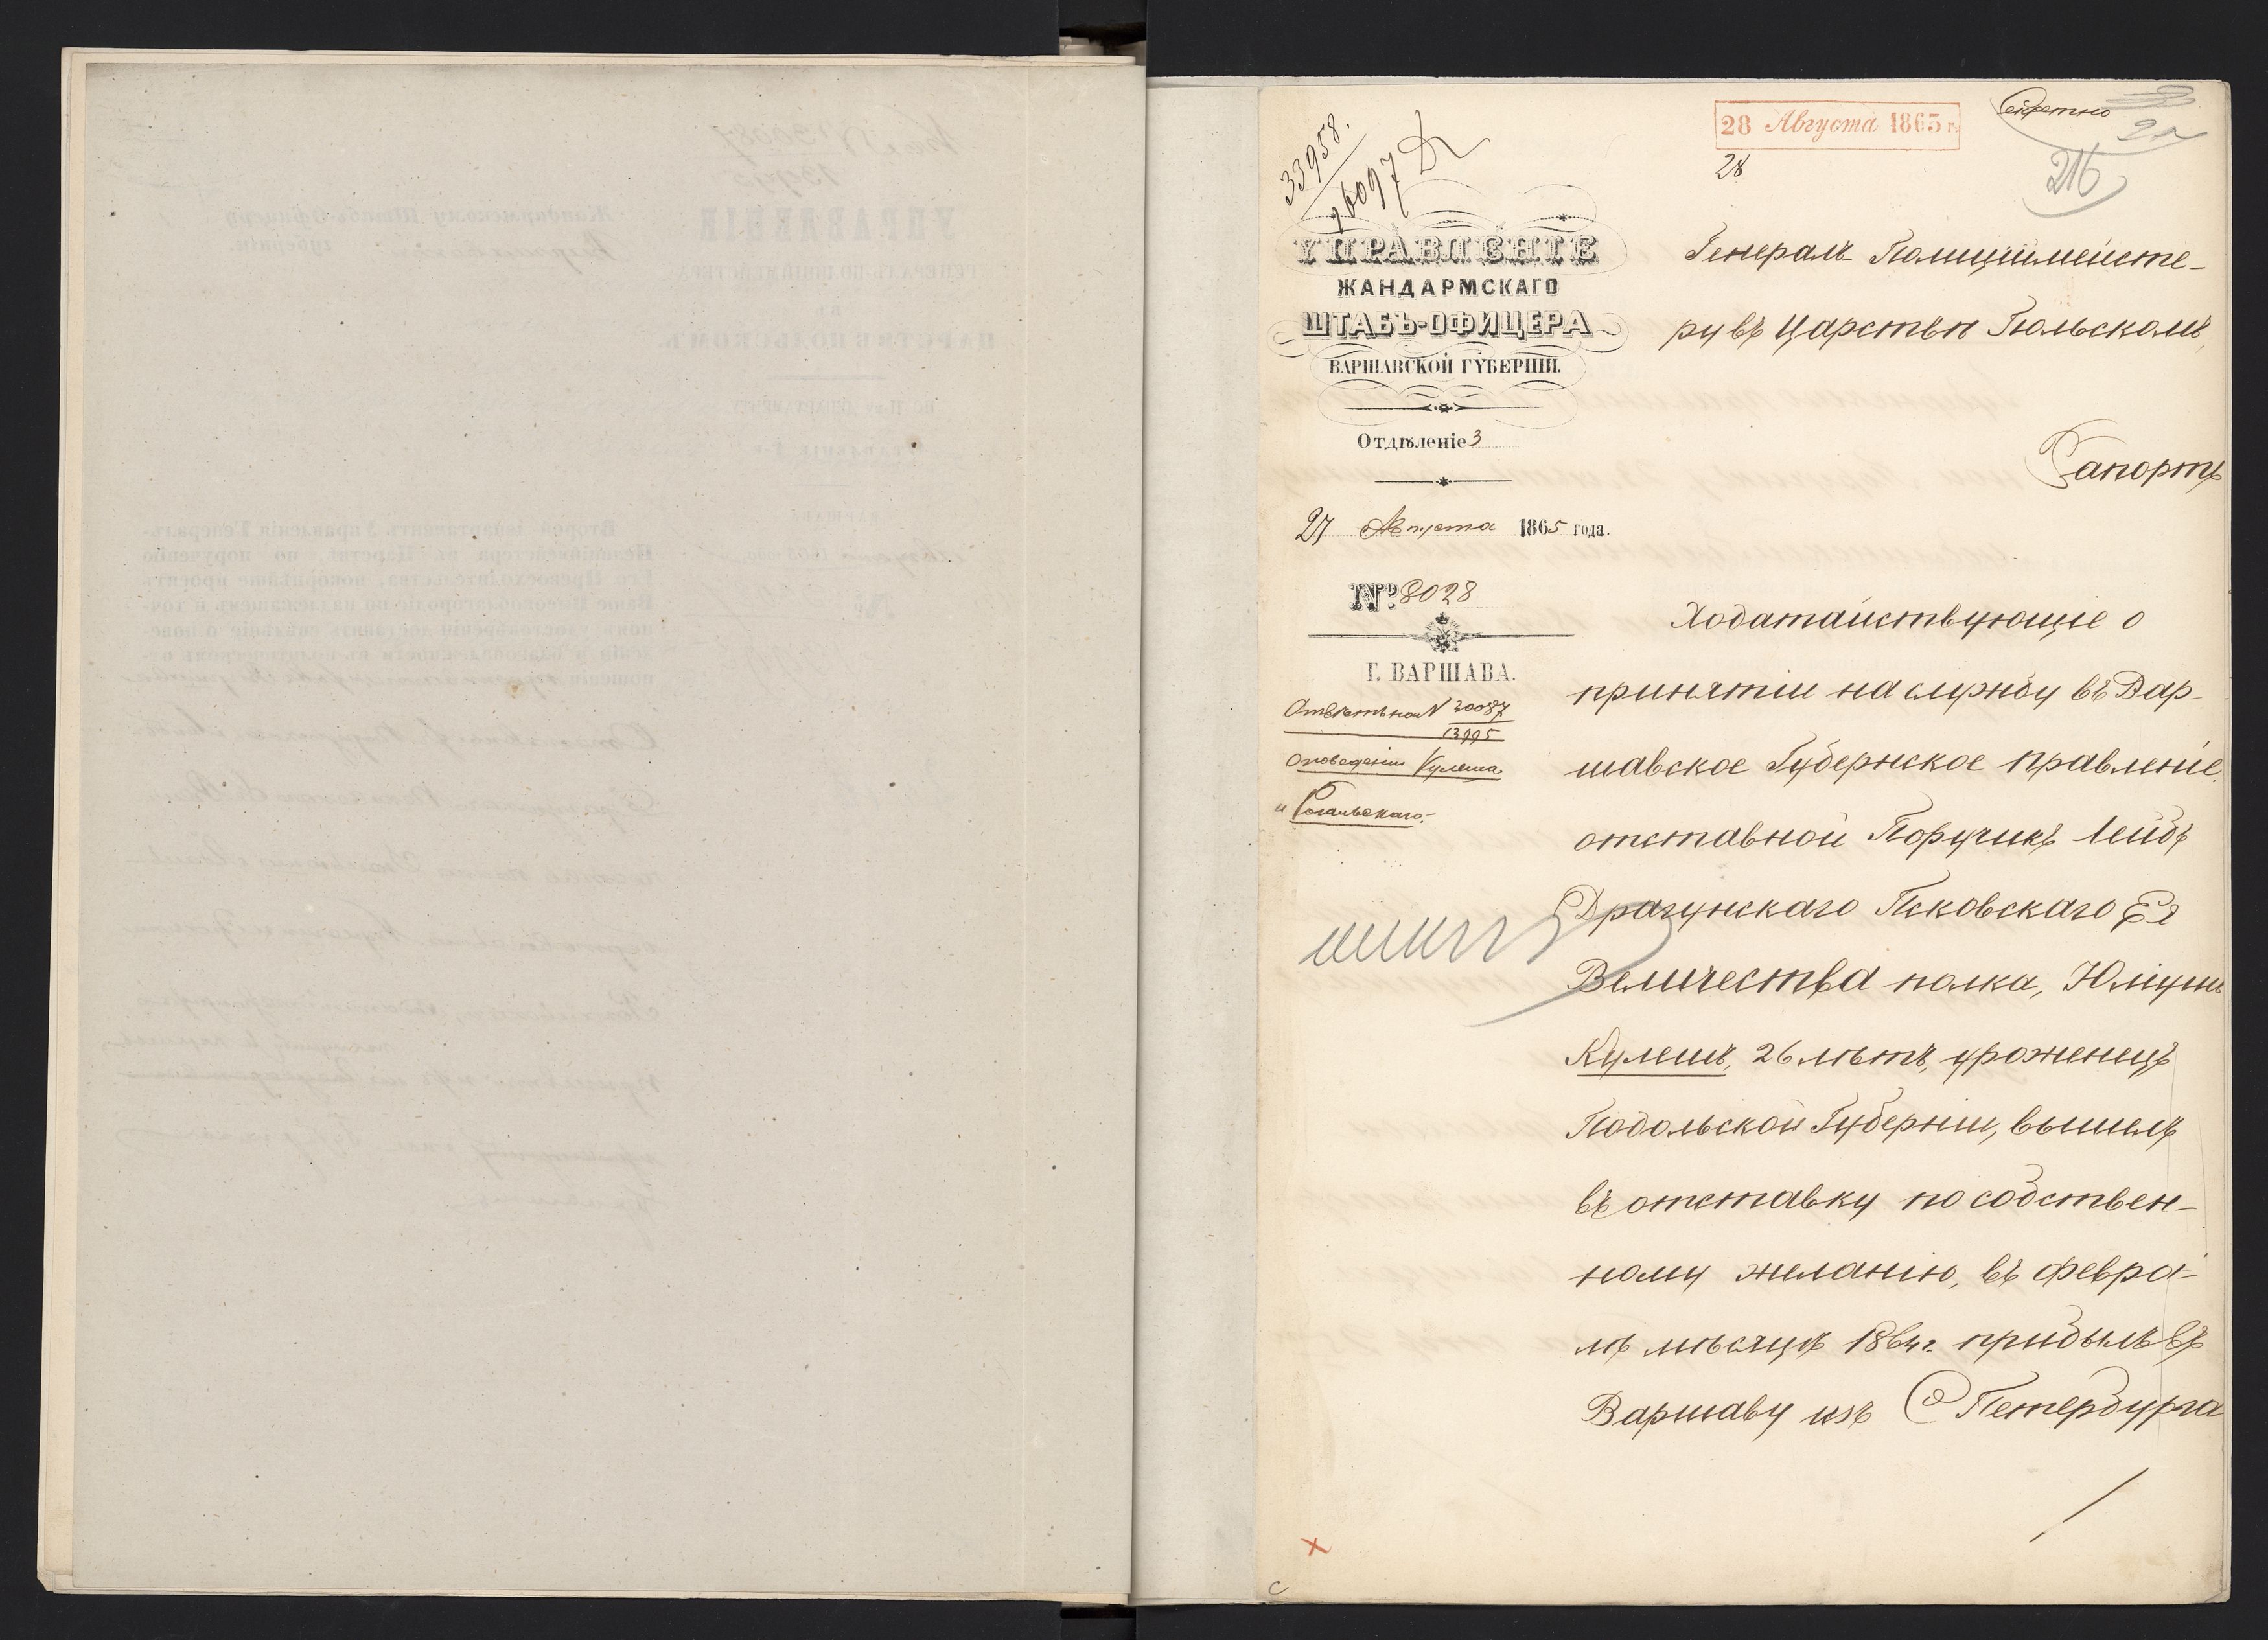 33958.
16097
28 Августа 1865 г.
28
Секретно
216
УПРАВЛЕНІЕ
ЖАНДАРМСКАГО
ШТАБЪ-ОФИЦЕРА
ВАРШАВСКОЙ ГУБЕРНІИ.
Отдѣленіе 3
27 Августа 1865 года.
№ 8028
Г. ВАРШАВА.
Отвѣтъ на № 30087
13995
о поведеніи Кулеша
и Рогальскаго.
Генералъ Полиціймейсте-
ру въ Царствѣ Польскомъ,
Рапортъ
Ходатайствующіе о
принятіи на службу въ Вар-
шавское Губернское правленіе
отставной Поручикъ Лейбъ
Драгунскаго Псковскаго Ея
Величества полка, Юліушъ
Кулешъ, 26 лѣтъ, уроженецъ
Подольской Губерніи, вышелъ
въ отставку по собствен-
ному желанію, въ февра-
лѣ мѣсяцѣ 1864 г. прибылъ въ
Варшаву изъ С Петербурга